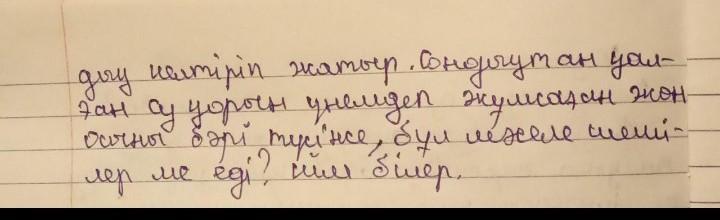 дық келтіріп жатыр. Сондықтан қал-
ған су қорын үнемдеп жұмсаған жөн
Осыны бәрі түсінсе, бұл мәселе шеші-
лер ме еді? Кім білер.